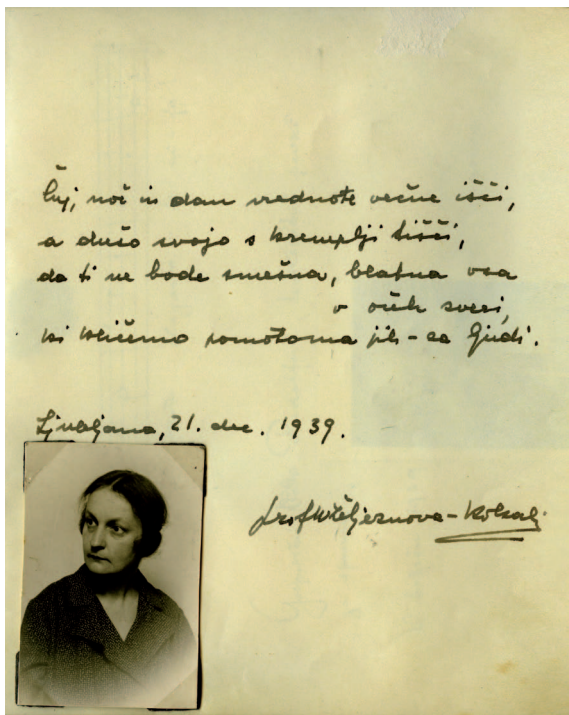 Čuj, noč in dan vrednote večne išči,
a dušo svojo s kremplji tišči,
da ti ne bode smešna, blatna vsa
v očeh zveri,
ki kličemo pomotoma jih – za ljudi.
Ljubljana, 21. dec. 1939.
-Kokalj